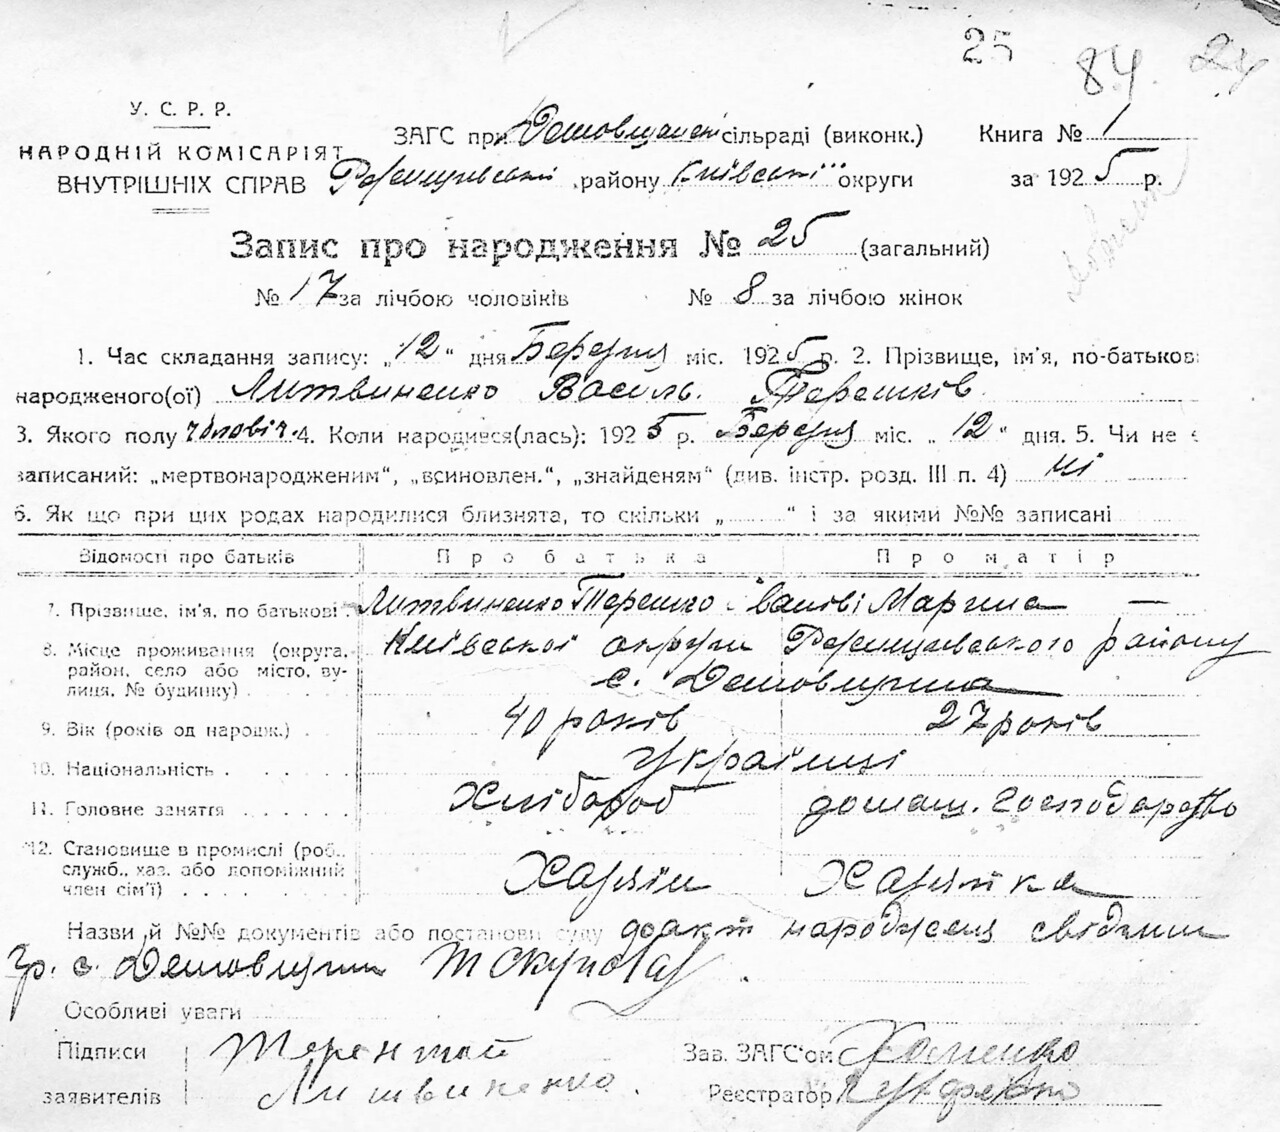 25 84 24
У. С. Р. Р.
НАРОДНІЙ КОМІСАРІЯТ
ВНУТРІШНІХ СПРАВ
ЗАГС при сільраді (виконк.) Книга № 1
району Київської округи за 1925 р.
Запис про народження № 25 (загальний)
№ 17 за лічбою чоловіків № 8 за лічбою жінок
1. Час складання запису: „12“ дня Березня міс. 1925 р. 2. Прізвище, ім'я, по-батькові
народженого(ої) Литвиненко Василь Терешків
3. Якого полу чоловіч. 4. Коли народився(лась): 1925 р. Березня міс. „12“ дня. 5. Чи не є
записаний: „мертвонародженим“, „всиновлен.“, „знайденям“ (див. інстр. розд. III п. 4) ні
6. Як що при цих родах народилися близнята, то скільки „ “ і за якими №№ записані
Відомості про батьків Про батька Про матір
7. Прізвище, ім'я, по батькові Литвиненко Терешко Марина —
8. Місце проживання (округа, район, село або місто, вулиця, № будинку) Київської округи району
с.
9. Вік (років од народж.) 40 років 27 років
10. Національність Українці
11. Головне заняття Хлібороб домаш. господарство
12. Становище в промислі (роб., служб., хаз. або допоміжний член сім'ї) Хазяїн Хазяйка
Назви й №№ документів або постанови суду факт народження свідчили
гр. с.
Особливі уваги
Підписи Терентий Зав. ЗАГС'ом Хоменко
заявителів Литвиненко. Реєстратор